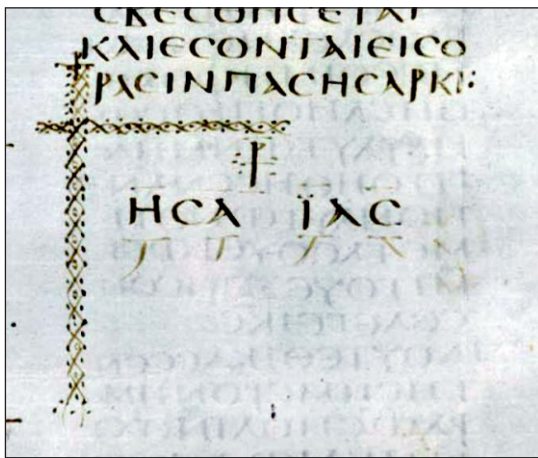 CΒΕCΘΗCΕΤΑΙ
ΚΑΙΕCΟΝΤΑΙΕΙCΟ
ΡΑCΙΝΠΑCΗCΑΡΚΙ:
ΗCΑ ΪΑC